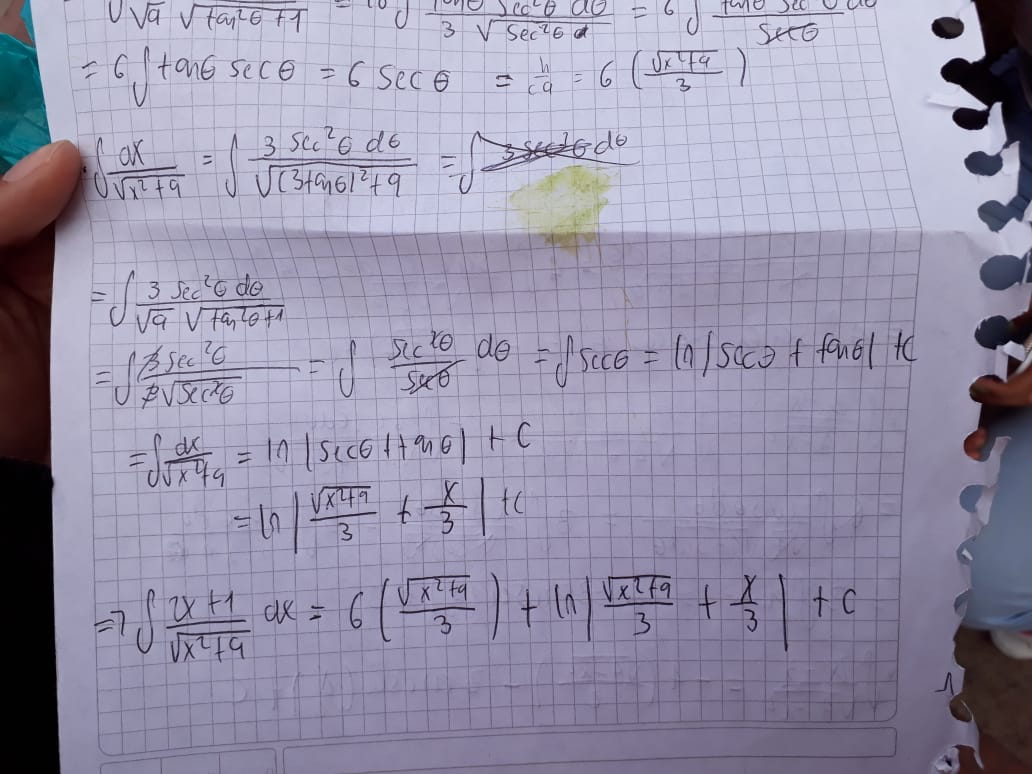 √9 √tan²θ+1 3 √sec²θ = 6 ∫ secθ
= 6 ∫ tanθ secθ = 6 secθ = h/ca = 6 (√x²+9/3)
∫ dx/√x²+9 = ∫ 3 sec²θ dθ/√(3tanθ)²+9 = ∫ 3 sec²θ dθ
= ∫ 3 sec²θ dθ/√9 √tan²θ+1
= ∫ 3 sec²θ/3√sec²θ = ∫ sec²θ/secθ dθ = ∫ secθ = ln|secθ + tanθ| + C
= ∫ dx/√x²+9 = ln |secθ + tanθ| + C
= ln |√x²+9/3 + x/3| + C
=> ∫ 2x+1/√x²+9 dx = 6 (√x²+9/3) + ln |√x²+9/3 + x/3| + C